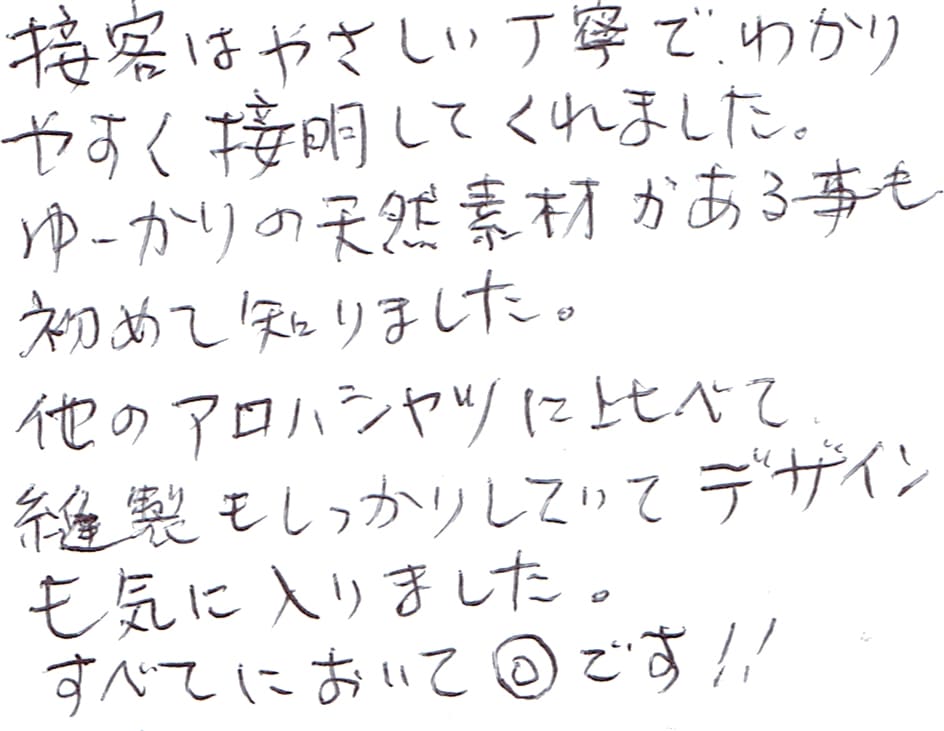 接客はやさしい丁寧で、わかり
やすく接明してくれました。
ゆーかりの天然素材がある事も
初めて知りました。
他のアロハシャツに比べて、
縫製もしっかりしていてデザイン
も気に入りました。
すべてにおいて◎です!!